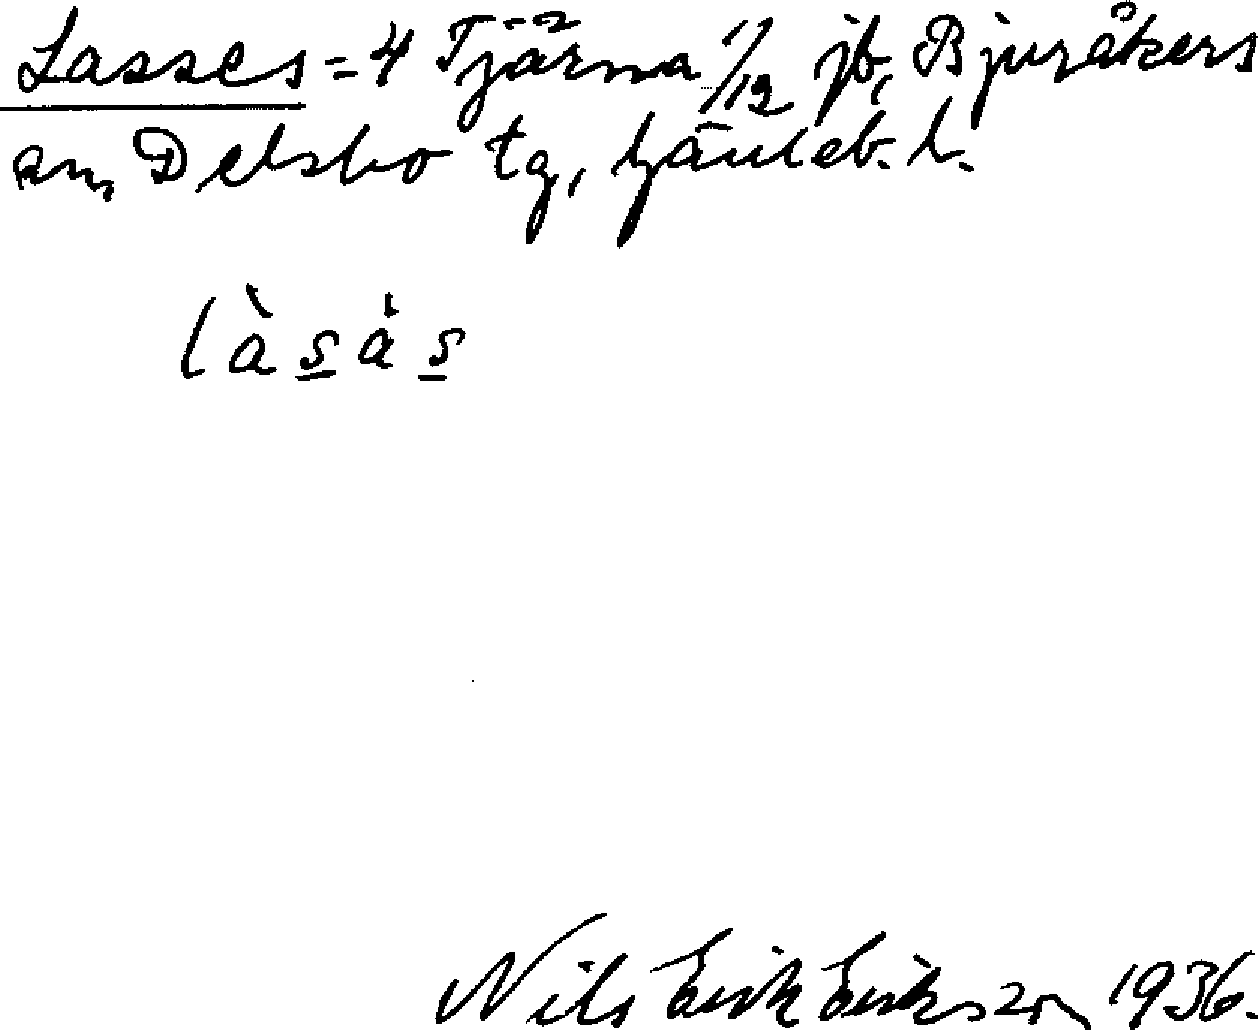 Lasses = 4 Tjärna 1/12 jb, Bjuråkers
sn, Delsbo tg, Gävleb. l.
làsȧs
Nils Erik Eriksson 1936.